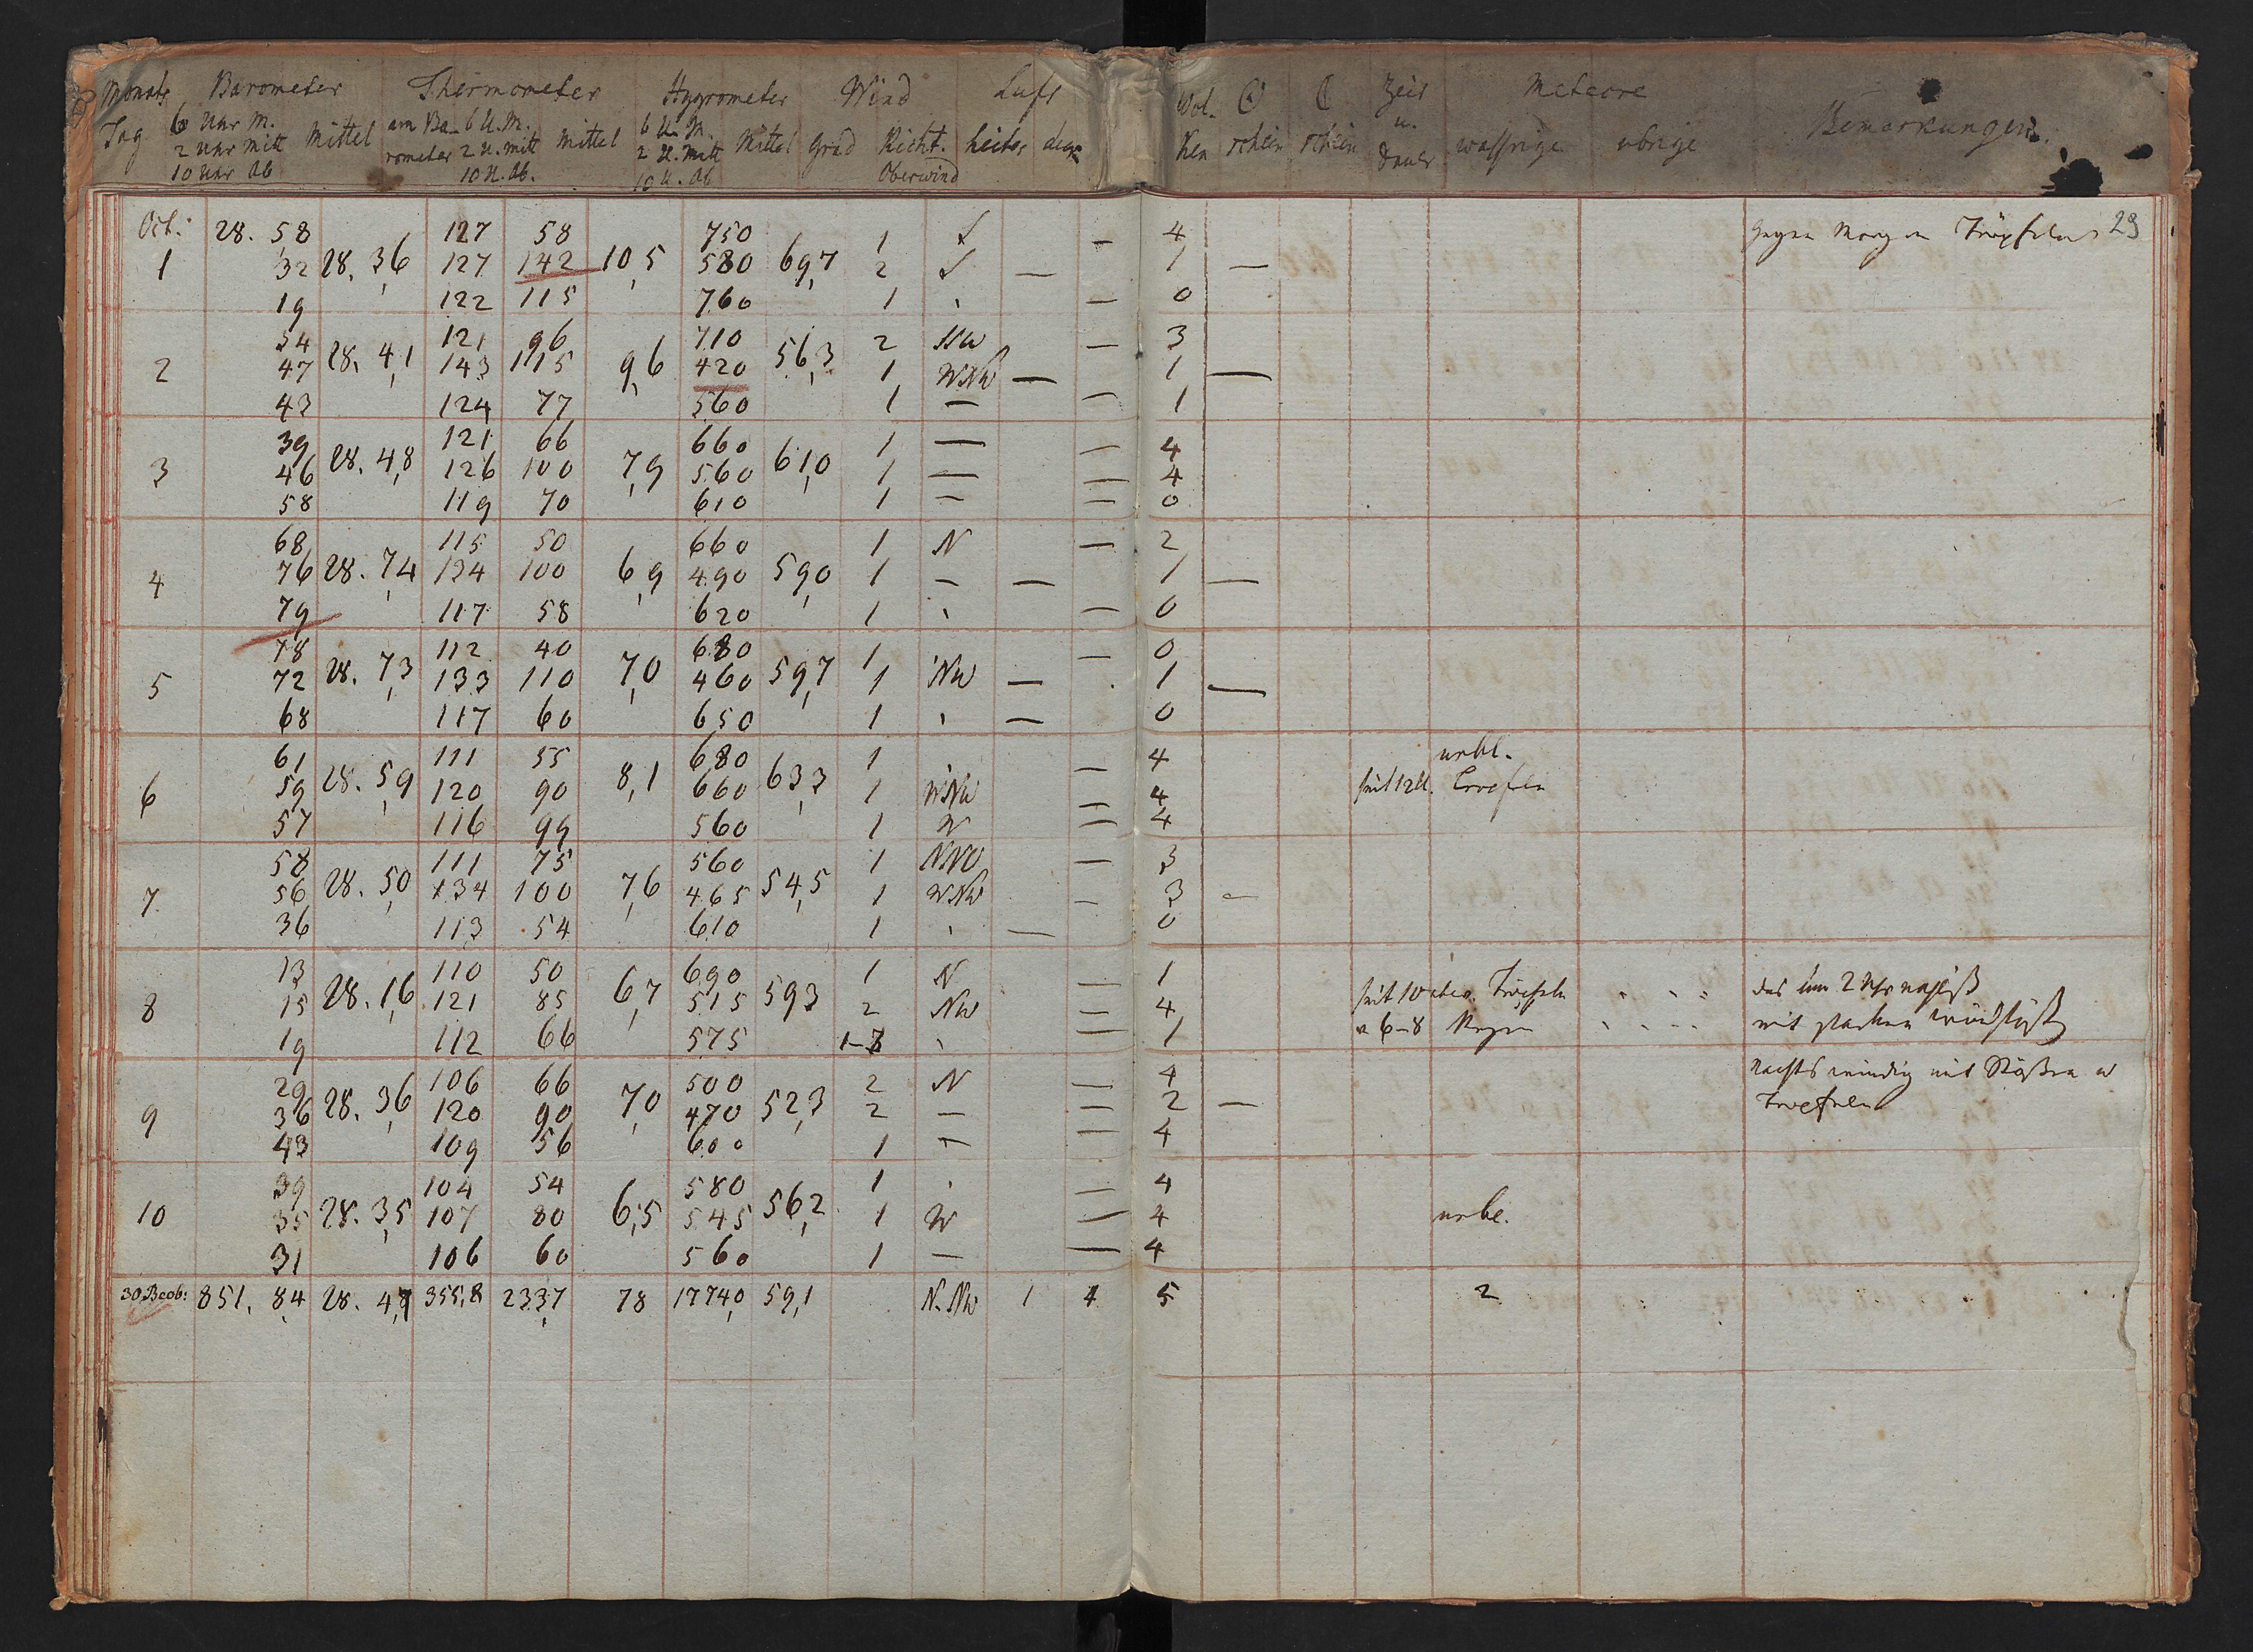 Monats Barometer Thermometer Hygrometer Wind Luft Wol- ☉ ☾ Zeit Meteore
Tag 6 Uhr M. Mittel am Ba- 6 U. M. Mittel 6 U. M. Mittel Grad Richt. heiter ken schein schein u. wassrige ubrige Bemerkungen.
2 Uhr Mitt rometer 2 U. Mitt 2 U. Mitt Dauer
10 Uhr Ab 10 U. Ab. 10 U. Ab Oberwind
Oct. 28. 58 127 58 750 1 S — 4 gegen Morgen Tröpfeln 29
1 32 28. 36 127 142 10,5 580 69,7 2 S — 1 —
19 122 115 760 1 — 0
54 121 96 710 2 — 3
2 47 28. 41 143 115 9,6 420 56,3 1 WNW — 1 —
43 124 77 560 1 — — 1
39 121 66 660 1 — — 4
3 46 28. 48 126 100 7,9 560 61,0 1 — — 4
58 119 70 610 1 — — 0
68 115 50 660 1 N — 2
4 76 28. 74 134 100 6,9 490 59,0 1 — — 1 —
79 117 58 620 1 — 0
78 112 40 680 1 — 0
5 72 28. 73 133 110 7,0 460 59,7 1 NW — 1 —
68 117 60 650 1 — 0
61 111 55 680 1 — 4 nebl.
6 59 28. 59 120 90 8,1 660 63,3 1 WNW — 4 seit 12 U. Troefeln
57 116 99 560 1 W — 4
58 111 75 560 1 NNO — 3
7. 56 28. 50 134 100 7,6 465 54,5 1 WNW — 3 —
36 113 54 610 1 — 0
13 110 50 690 1 N — 1
8 15 28. 16 121 85 6,7 515 593 2 NW — 4 seit 10 Tröpfeln das um 2 Uhr
19 112 66 575 1-3 — 1 v 6-8 Regen mit starken Windstößen
29 106 66 500 2 N — 4 Nachts windig mit Stößen u
9 36 28. 36 120 90 7,0 470 52,3 2 — — 2 — Troefeln
43 109 56 600 1 — — 4
39 104 54 580 1 — 4
10 35 28. 35 107 80 6,5 545 56,2 1 W — 4 nebl.
31 106 60 560 1 — — 4
30 Beob: 851, 84 28. 47 355,8 2337 78 17740 59,1 N. NW 1 4 5 2